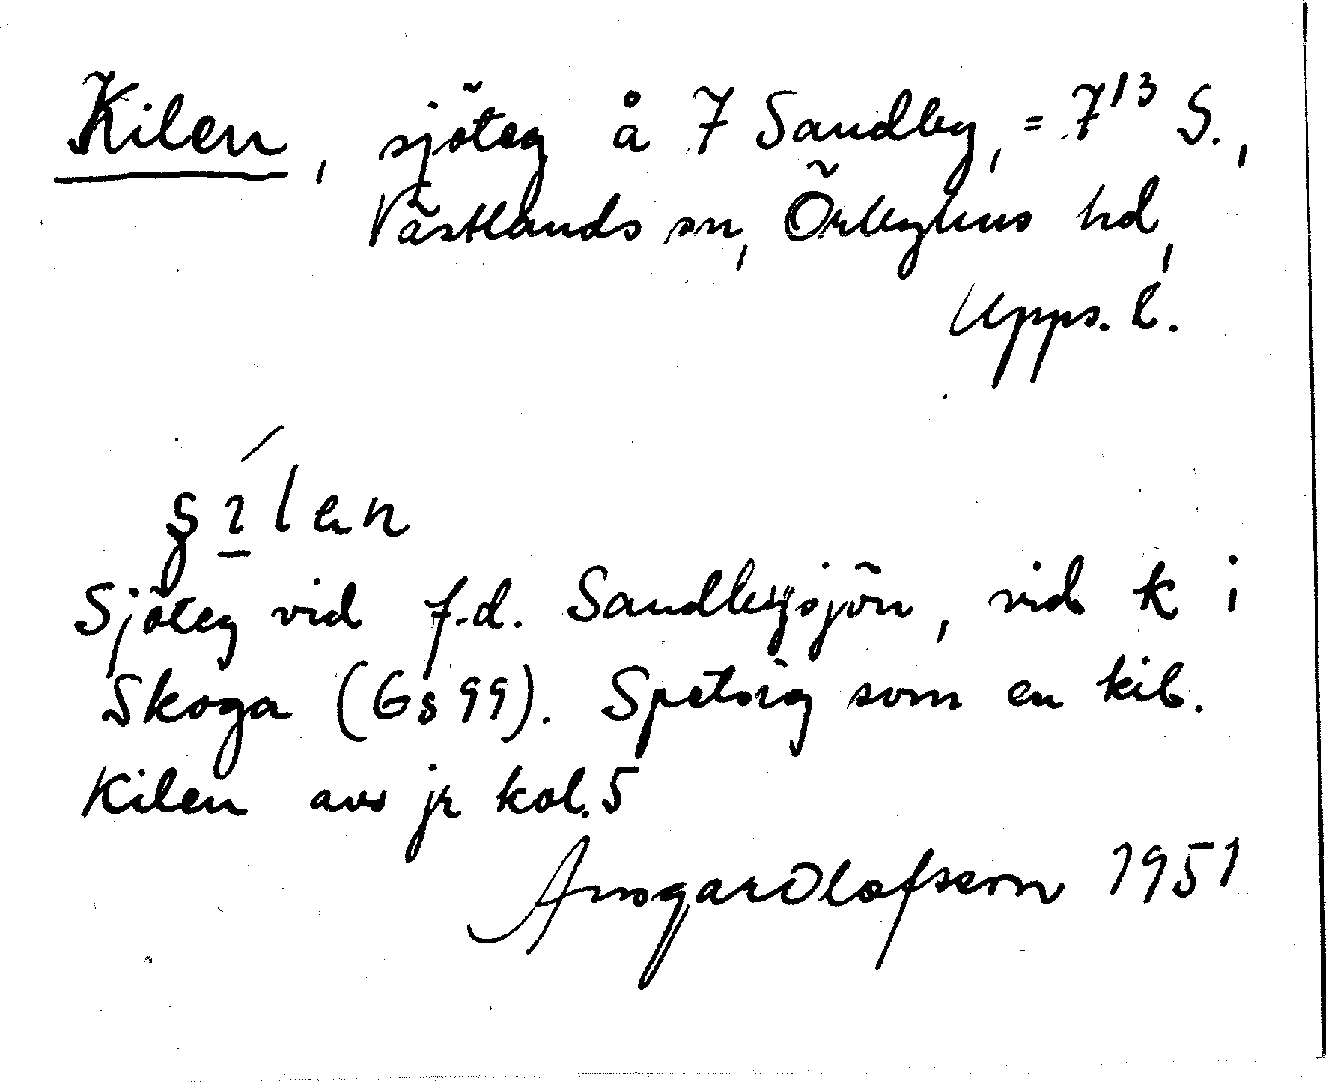 Kilen, sjöteg å 7 Sandby, = 7¹³ S.,
Västlands sn, Örbyhus hd,
Upps. l.
Sjöteg vid f.d. Sandbysjön, vid k i
Skoga (Gs 99). Spetsig som en kil.
Kilen avs jr kol. 5
Ansgar Olofsson 1951